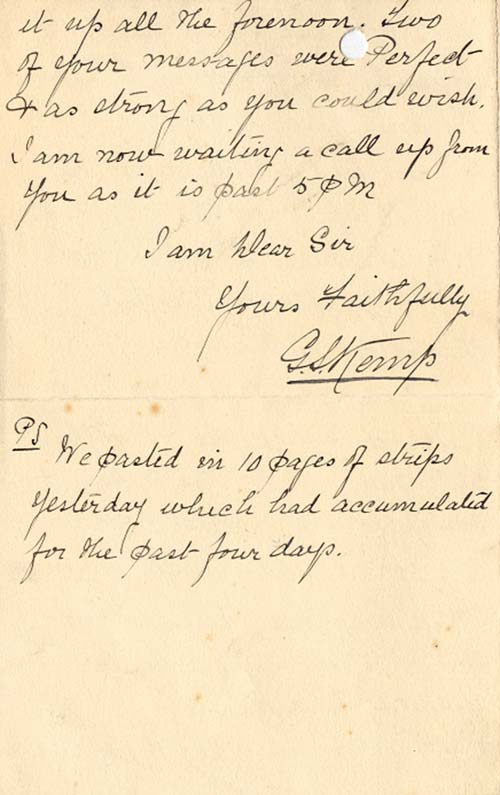 it up all the forenoon. Two
of your messages were Perfect
& as strong as you could wish.
I am now waiting a call up from
you as it is past 5 PM
I am Dear Sir
Yours Faithfully
G.S. Kemp
PS
We pasted in 10 pages of strips
yesterday which had accumulated
for the past four days.